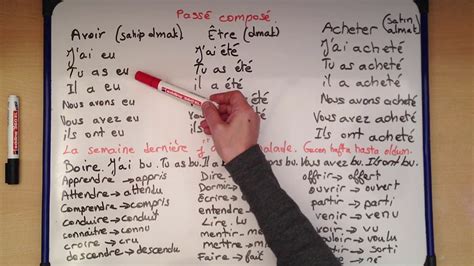 Passé composé
Avoir (sahip olmak) Être (olmak) Acheter (satın almak)
J'ai eu J'ai été J'ai acheté
Tu as eu Tu as été Tu as acheté
Il a eu il a été il a acheté
Nous avons eu été Nous avons acheté
Vous avez eu Vous été Vous avez acheté
ils ont eu ils été ils ont acheté
La semaine dernière j'ai malade. Geçen hafta hasta oldum.
Boire J'ai bu. Tu as bu. Il bu. Nous avons bu. Vous avez bu. Ils ont bu.
Apprendre → appris Dire offrir → offert
Attendre → attendu Dormir ouvrir → ouvert
Comprendre → compris Écrire → partir → parti
Conduire → conduit entendre venir → venu
connaître → connu Lire. Lu voir → vu
croire → cru mentir → vouloir → voulu
descendre → descendu mettre → sortir → sorti
Faire → fait